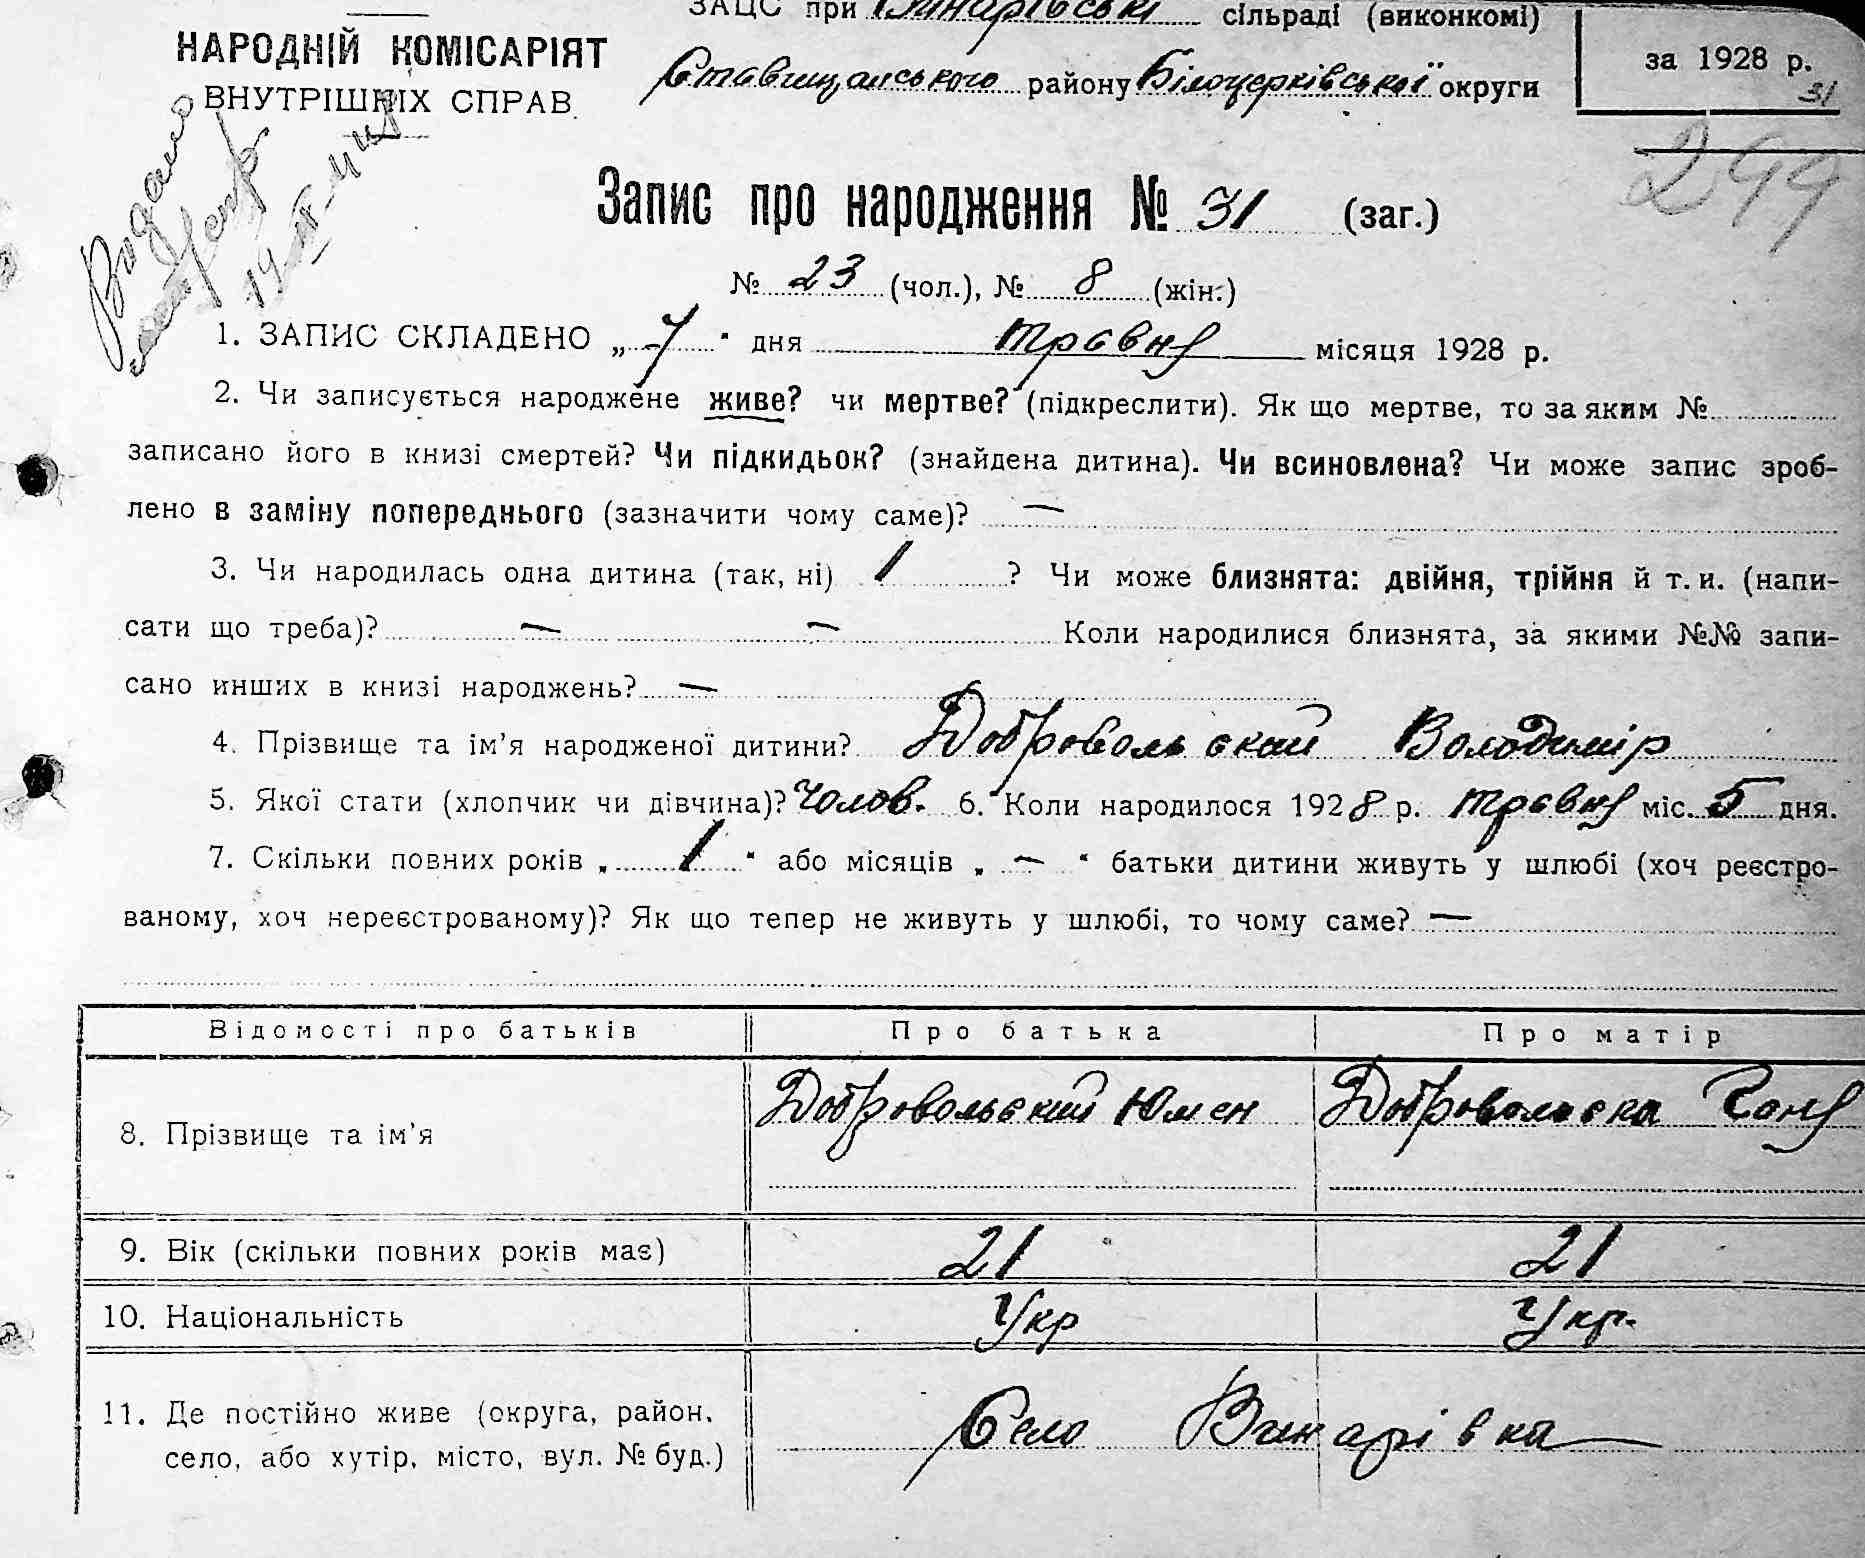 ЗАЦС при Винарівські сільраді (виконкомі)
НАРОДНІЙ КОМІСАРІЯТ
ВНУТРІШНІХ СПРАВ.
Ставищанського району Білоцерківської округи
за 1928 р.
31
299
Видано
Запис про народження № 31 (заг.)
№ 23 (чол.), № 8 (жін.)
1. ЗАПИС СКЛАДЕНО „7“ дня травня місяця 1928 р.
2. Чи записується народжене живе? чи мертве? (підкреслити). Як що мертве, то за яким №
записано його в книзі смертей? Чи підкидьок? (знайдена дитина). Чи всиновлена? Чи може запис зроб-
лено в заміну попереднього (зазначити чому саме)? —
3. Чи народилась одна дитина (так, ні) 1 ? Чи може близнята: двійня, трійня й т. и. (напи-
сати що треба)? — — Коли народилися близнята, за якими №№ запи-
сано инших в книзі народжень? —
4. Прізвище та ім’я народженої дитини? Добровольский Володимір
5. Якої стати (хлопчик чи дівчина)? Чолов. 6. Коли народилося 1928 р. травня міс. 5 дня.
7. Скільки повних років „ 1 “ або місяців „ — “ батьки дитини живуть у шлюбі (хоч реєстро-
ваному, хоч нереєстрованому)? Як що тепер не живуть у шлюбі, то чому саме? —
Відомості про батьків Про батька Про матір
8. Прізвище та ім’я Добровольский Юмен Добровольска Ганя
9. Вік (скільки повних років має) 21 21
10. Національність Укр Укр.
11. Де постійно живе (округа, район, село, або хутір, місто, вул. № буд.) Село Винарівка